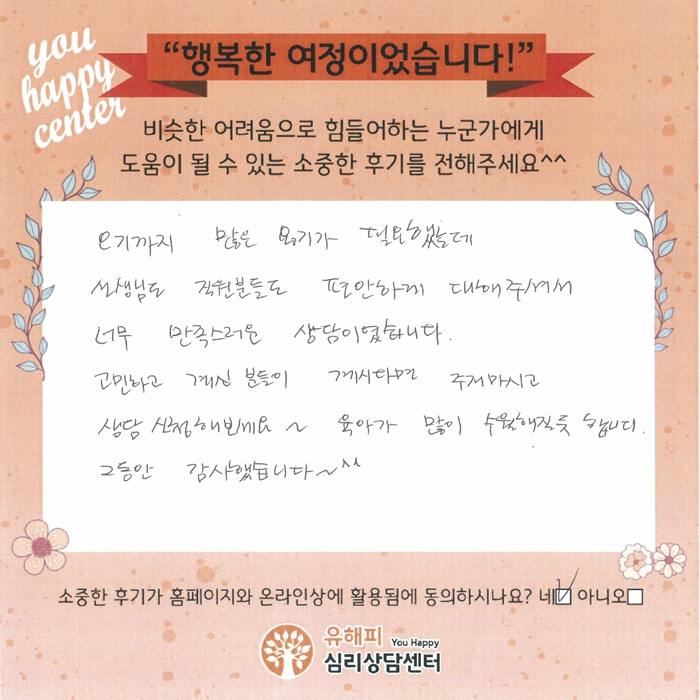 you
happy
center
“행복한 여정이었습니다!”
비슷한 어려움으로 힘들어하는 누군가에게
도움이 될 수 있는 소중한 후기를 전해주세요^^
오기까지 많은 용기가 필요했는데
선생님도 직원분들도 편안하게 대해주셔서
너무 만족스러운 상담이였습니다.
고민하고 계신 분들이 계시다면 주저마시고
상담 신청해보세요~ 육아가 많이 수월해질듯 합니다.
그동안 감사했습니다~^^
소중한 후기가 홈페이지와 온라인상에 활용됨에 동의하시나요? 네☑ 아니오□
유해피 You Happy
심리상담센터